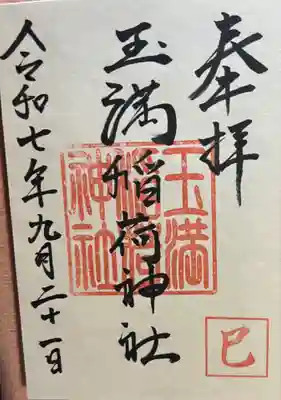 奉拝
玉満稲荷神社
玉満稲荷神社
巳
令和七年九月二十一日